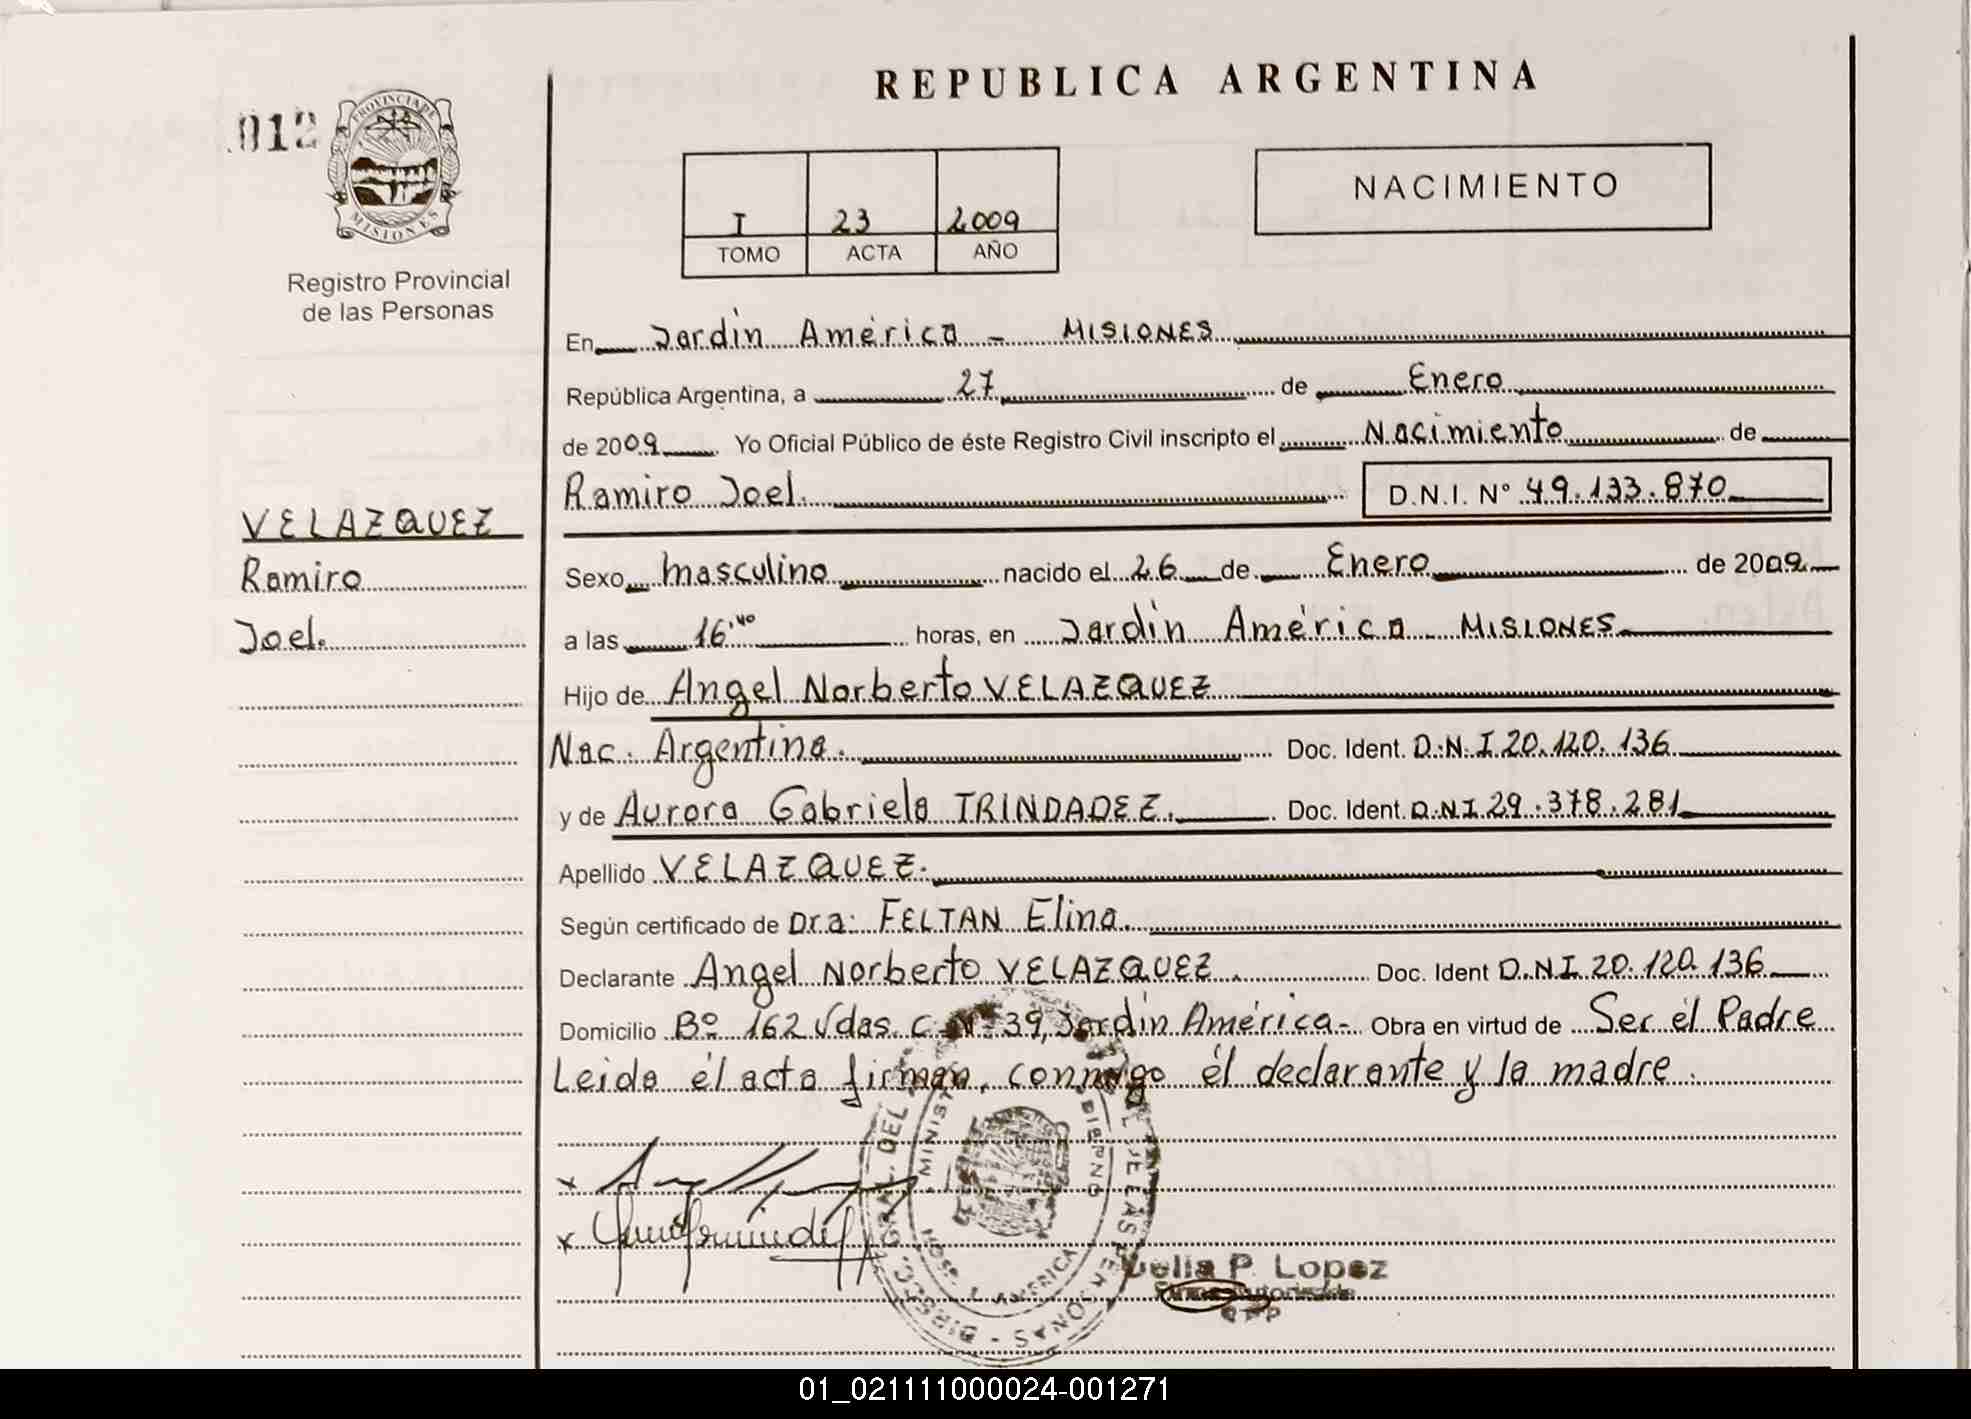 REPUBLICA ARGENTINA
012
PROVINCIA DE
MISIONES
Registro Provincial
de las Personas
I 23 2009
TOMO ACTA AÑO
NACIMIENTO
En Jardin América - MISIONES
República Argentina, a 27 de Enero
de 2009 Yo Oficial Público de éste Registro Civil inscripto el Nacimiento de
Ramiro Joel. D.N.I. N° 49.133.870
VELAZQUEZ
Ramiro
Joel.
Sexo masculino nacido el 26 de Enero de 2009
a las 16 horas, en Jardin América - MISIONES
Hijo de Angel Norberto VELAZQUEZ
Nac. Argentina. Doc. Ident. D.N.I 20.120.136
y de Aurora Gabriela TRINDADEZ. Doc. Ident. D.N.I 29.378.281
Apellido VELAZQUEZ.
Según certificado de Dra: FELTAN Elina.
Declarante Angel Norberto VELAZQUEZ. Doc. Ident D.N.I 20.120.136
Domicilio B° 162 Vdas. C. N° 39, Jardin América - Obra en virtud de Ser él Padre
Leida él acta firman, conmigo él declarante y la madre.
Delia P. Lopez
01_021111000024-001271